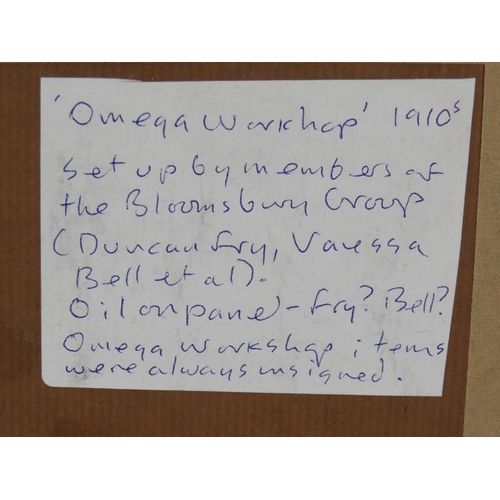 'Omega Workhop' 1910s
Set up by members of
the Bloomsbury Group
(Duncan Fry, Vanessa
Bell et al).
Oil on panel - Fry? Bell?
Omega Workshop items
were always unsigned.